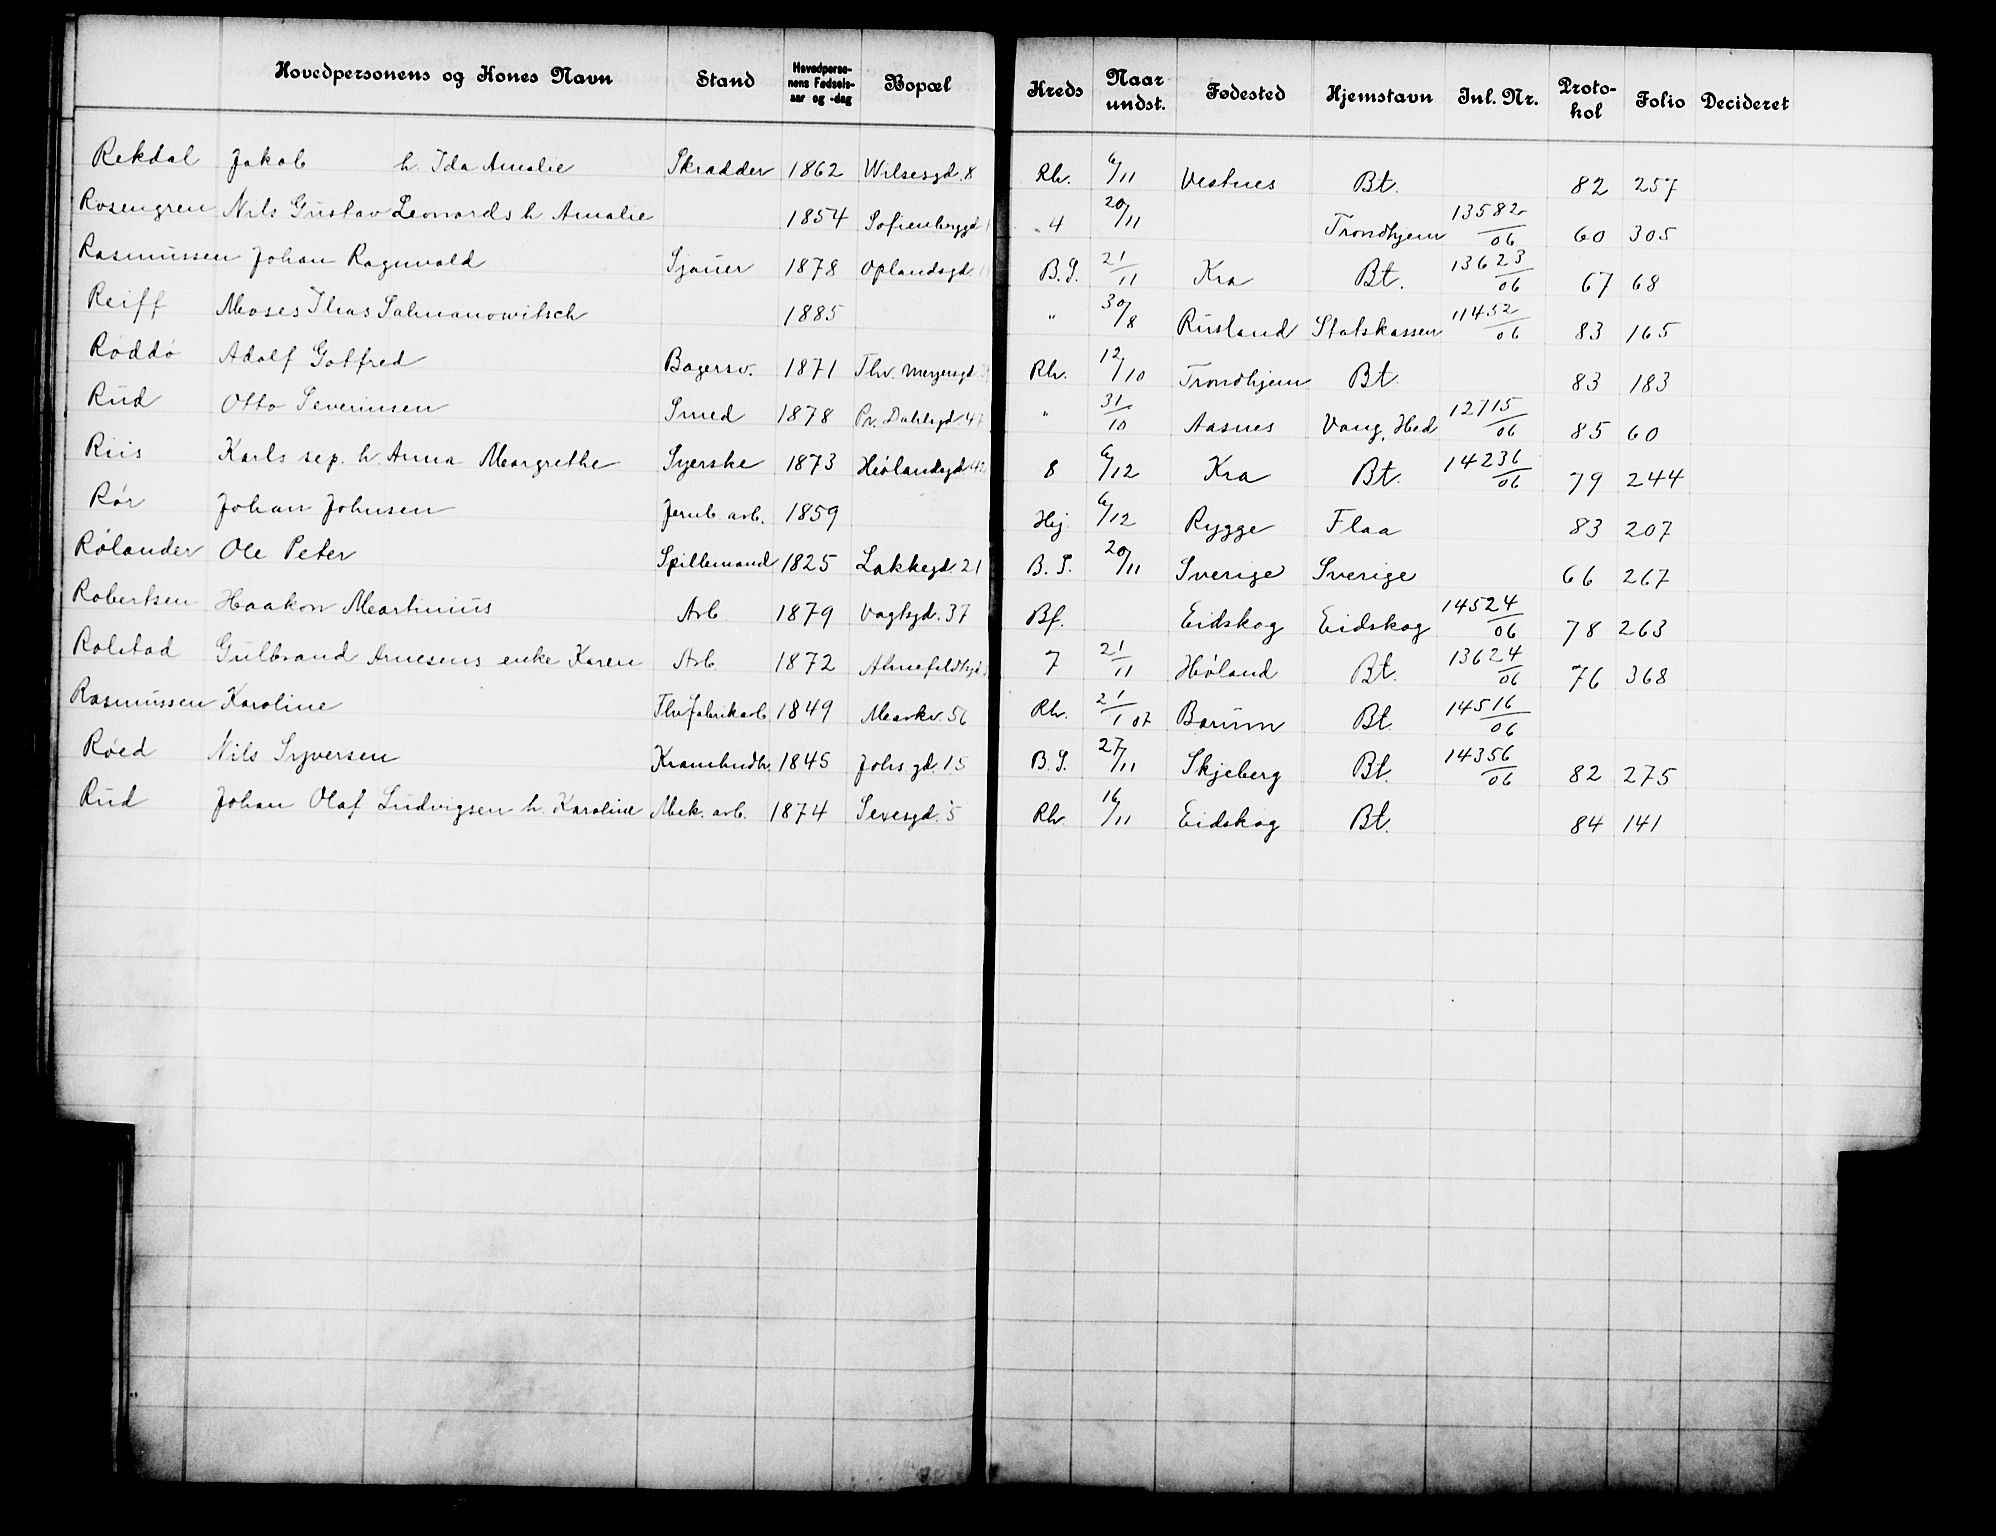 Hovedpersonens og Kones Navn | Stand | Hovedpersonens Fødselsaar og -dag | Bopæl | Kreds | Naar undst. | Fødested | Hjemstavn | Jnl. Nr. | Protokol | Folio | Decideret
Rekdal Jakob h. Ida Amalie Skrædder 1862 Wilsesgd. 8 Rh. 6/11 Vestnes Bt. 82 257
Rosengren Nils Gustav Leonards h Amalie 1854 Sofienberggd 4 20/11 Trondhjem 13582/06 60 305
Rasmussen Johan Ragnvald Sjauer 1878 Oplandsgd. B.S. 21/11 Kra Bt. 13623/06 67 68
Reiff Moses Ilias Salmanowitsch 1885 " 30/8 Rusland Statskassen 11452/06 83 165
Røddø Adolf Gotfred Bagersv. 1871 Thv. Meyersgd Rh. 12/10 Trondhjem Bt. 83 183
Rud Otto Severinsen Smed 1878 Pr. Dahlsgd 47 " 31/10 Aasnes Vang, Hed 12715/06 85 60
Riis Karls sep. h. Anna Margrethe Syerske 1873 Hølandsgd 42 8 6/12 Kra Bt. 14236/06 79 244
Rør Johan Johnsen Jernb. arb. 1859 Hj. 6/12 Rygge Flaa 83 207
Rølander Ole Peter Spillemand 1825 Lakkegd. 21 B. S. 20/11 Sverige Sverige 66 267
Robertsen Haakon Martinius Arb 1879 Vagtsgd. 37 Bf. Eidskog Eidskog 14524/06 78 263
Rolstad Gulbrand Arnesens enke Karen Arb. 1872 Ahnefeldtsgd. 7 21/11 Høland Bt. 13624/06 76 368
Rasmussen Karoline Thvfabrikarb. 1849 Markv. 56 Rh. 2/1 07 Bærum Bt. 14516/06
Røed Nils Syversen Krambudh. 1845 Johs gd. 15 B.S. 27/11 Skjeberg Bt. 14356/06 82 275
Rud Johan Olaf Ludvigsen h. Karoline Mek. arb. 1874 Sexesgd. 5 Rh 16/11 Eidskog Bt. 84 141